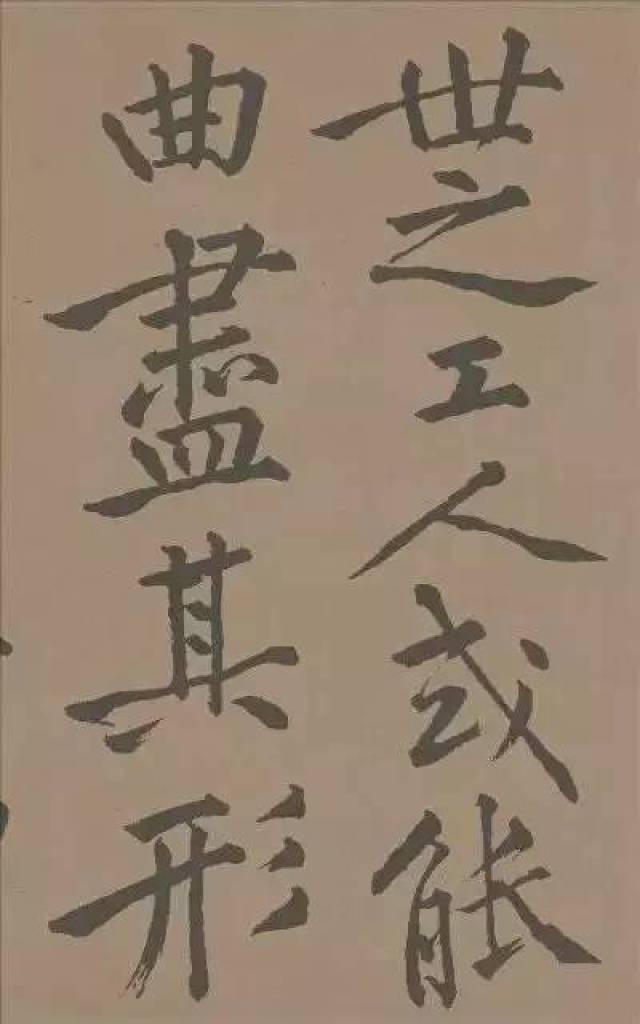 世之工人或能
曲盡其形